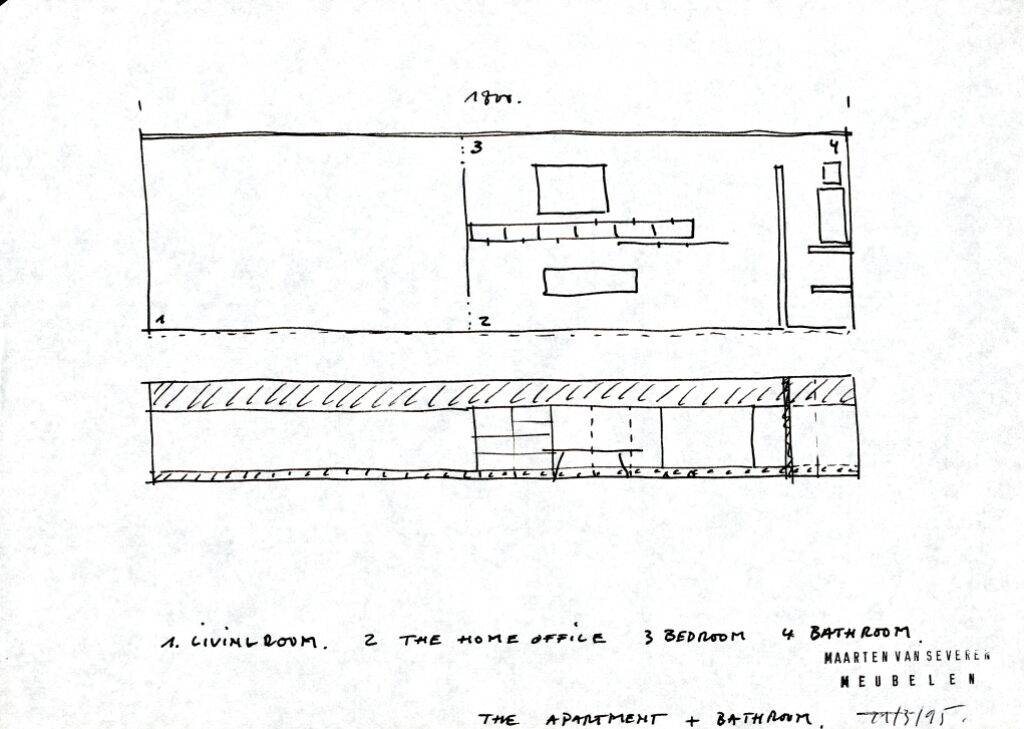 1800.
3
4
1
2
1. LIVINGROOM. 2 THE HOME OFFICE 3 BEDROOM 4 BATHROOM.
MAARTEN VAN SEVEREN
MEUBELEN
THE APARTMENT + BATHROOM.